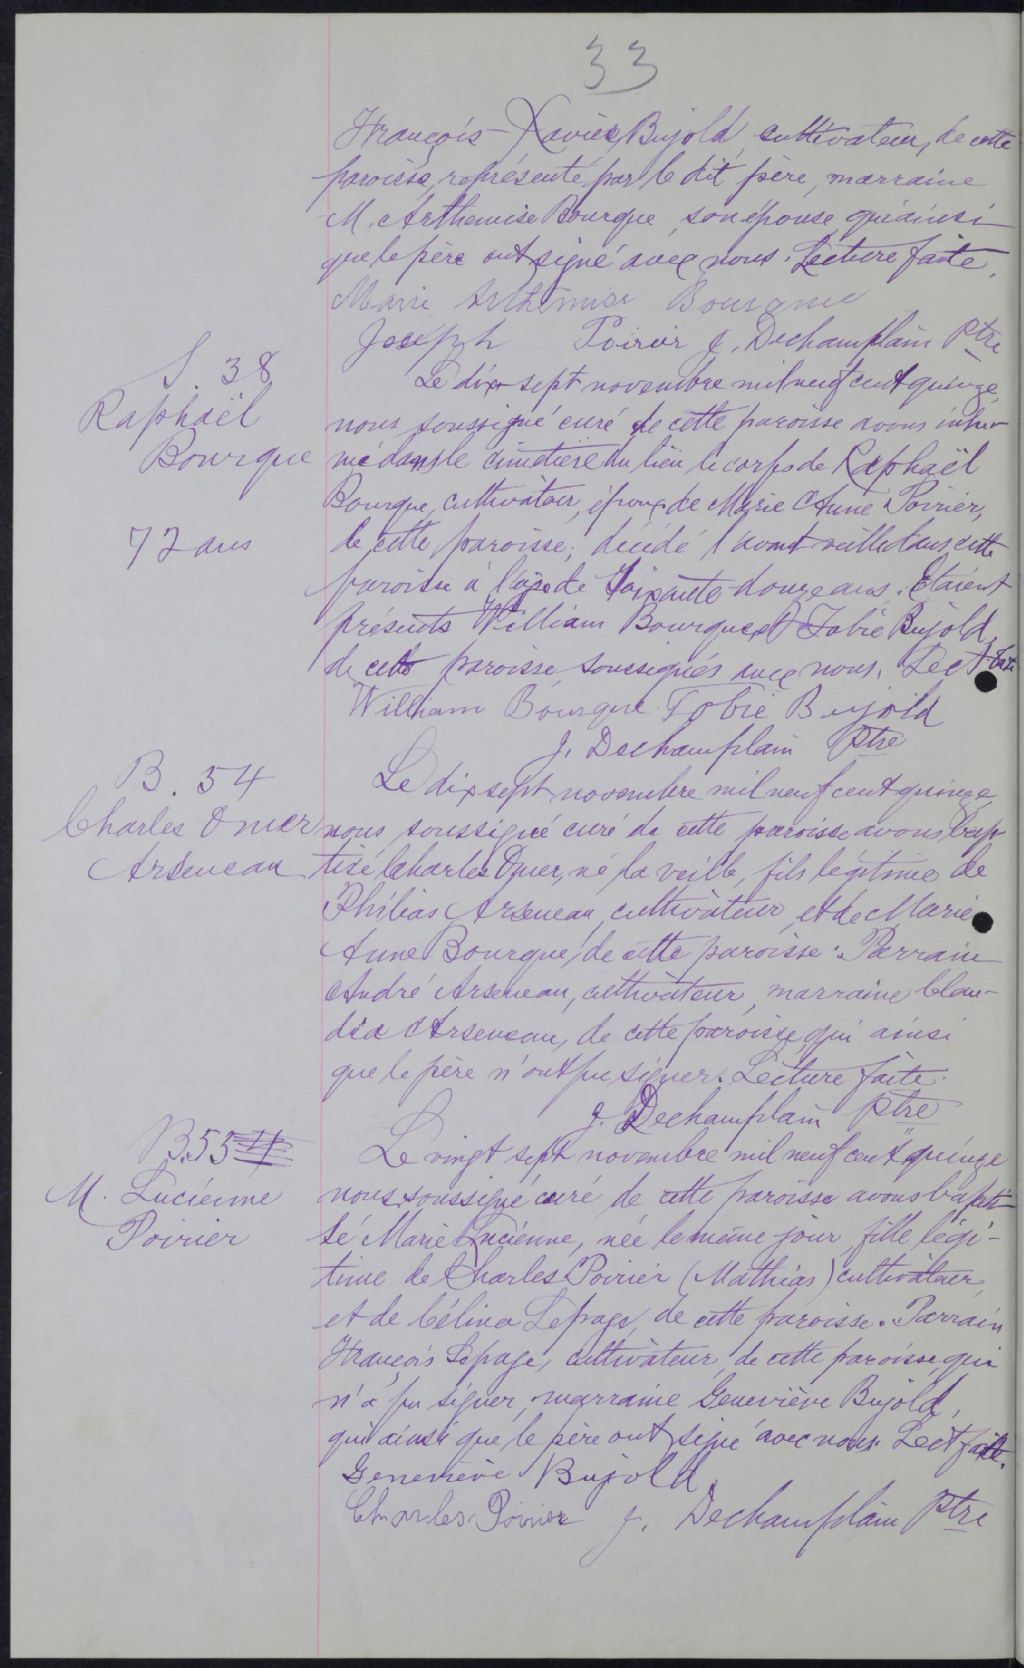 33
François-Xavier Bujold, cultivateur, de cette
paroisse, représenté par le dit père, marraine
M. Arthemise Bourque, son épouse, qui ainsi
que le père ont signé avec nous. Lecture faite.
Marie Arthemise Bourque
Joseph Poirier J. Dechamplain Ptre
S. 38
Raphaël
Bourque
72 ans
Le dix-sept novembre mil neuf cent quinze,
nous soussigné curé de cette paroisse avons inhu-
mé dans le cimetière du lieu le corps de Raphaël
Bourque, cultivateur, époux de Marie Anne Poirier,
de cette paroisse, décédé l'avant veille dans cette
paroisse à l'âge de soixante-douze ans. Etaient
présents William Bourque et Tobie Bujold,
de cette paroisse, soussignés avec nous. Lect. faite
William Bourque Tobie Bujold
J. Dechamplain Ptre
B. 54
Charles Omer
Arseneau
Le dix sept novembre mil neuf cent quinze,
nous soussigné curé de cette paroisse avons bap-
tisé Charles Omer, né la veille, fils légitime de
Philias Arseneau, cultivateur, et de Marie
Anne Bourque, de cette paroisse. Parrain
André Arseneau, cultivateur, marraine Clau-
dia Arseneau, de cette paroisse, qui ainsi
que le père n'ont pu signer. Lecture faite.
J. Dechamplain Ptre
B. 55
M. Lucienne
Poirier
Le vingt sept novembre mil neuf cent quinze
nous soussigné curé de cette paroisse avons bapti-
sé Marie Lucienne, née le même jour, fille légi-
time de Charles Poirier (Mathias) cultivateur,
et de Célina Lepage, de cette paroisse. Parrain
François Lepage, cultivateur, de cette paroisse, qui
n'a pu signer, marraine Geneviève Bujold,
qui ainsi que le père ont signé avec nous. Lect. faite.
Geneviève Bujold
Charles Poirier J. Dechamplain Ptre